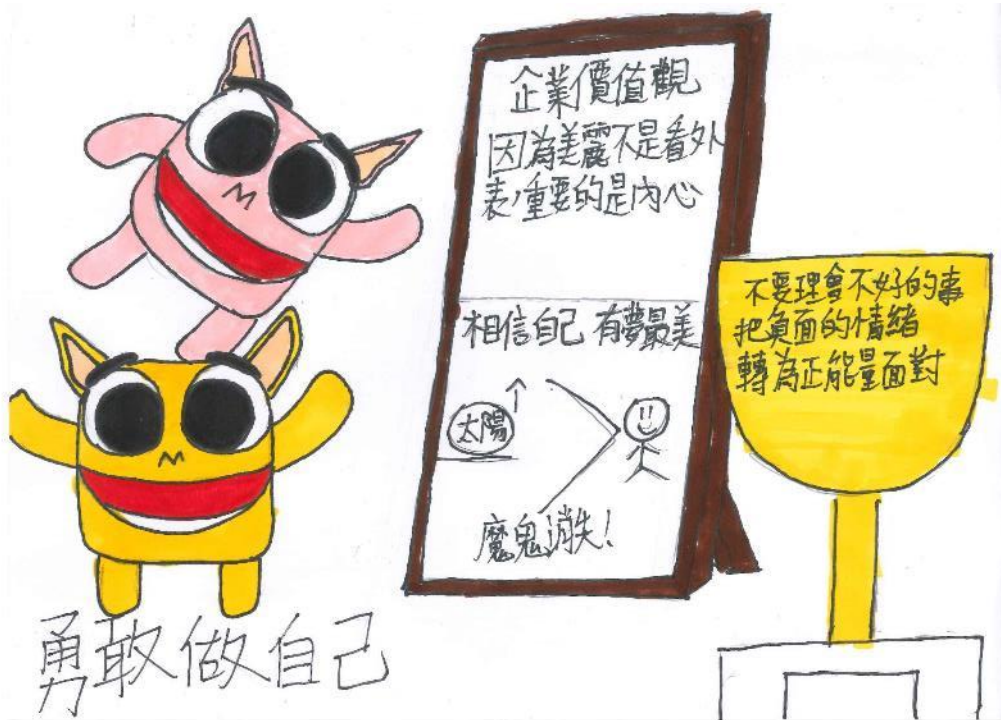 企業價值觀
因為美震不是看外
表,重要的是內心
相信自己 有夢最美
太陽
魔鬼消失!
不要理會不好的事
把負面的情緒
轉為正能量面對
勇敢做自己